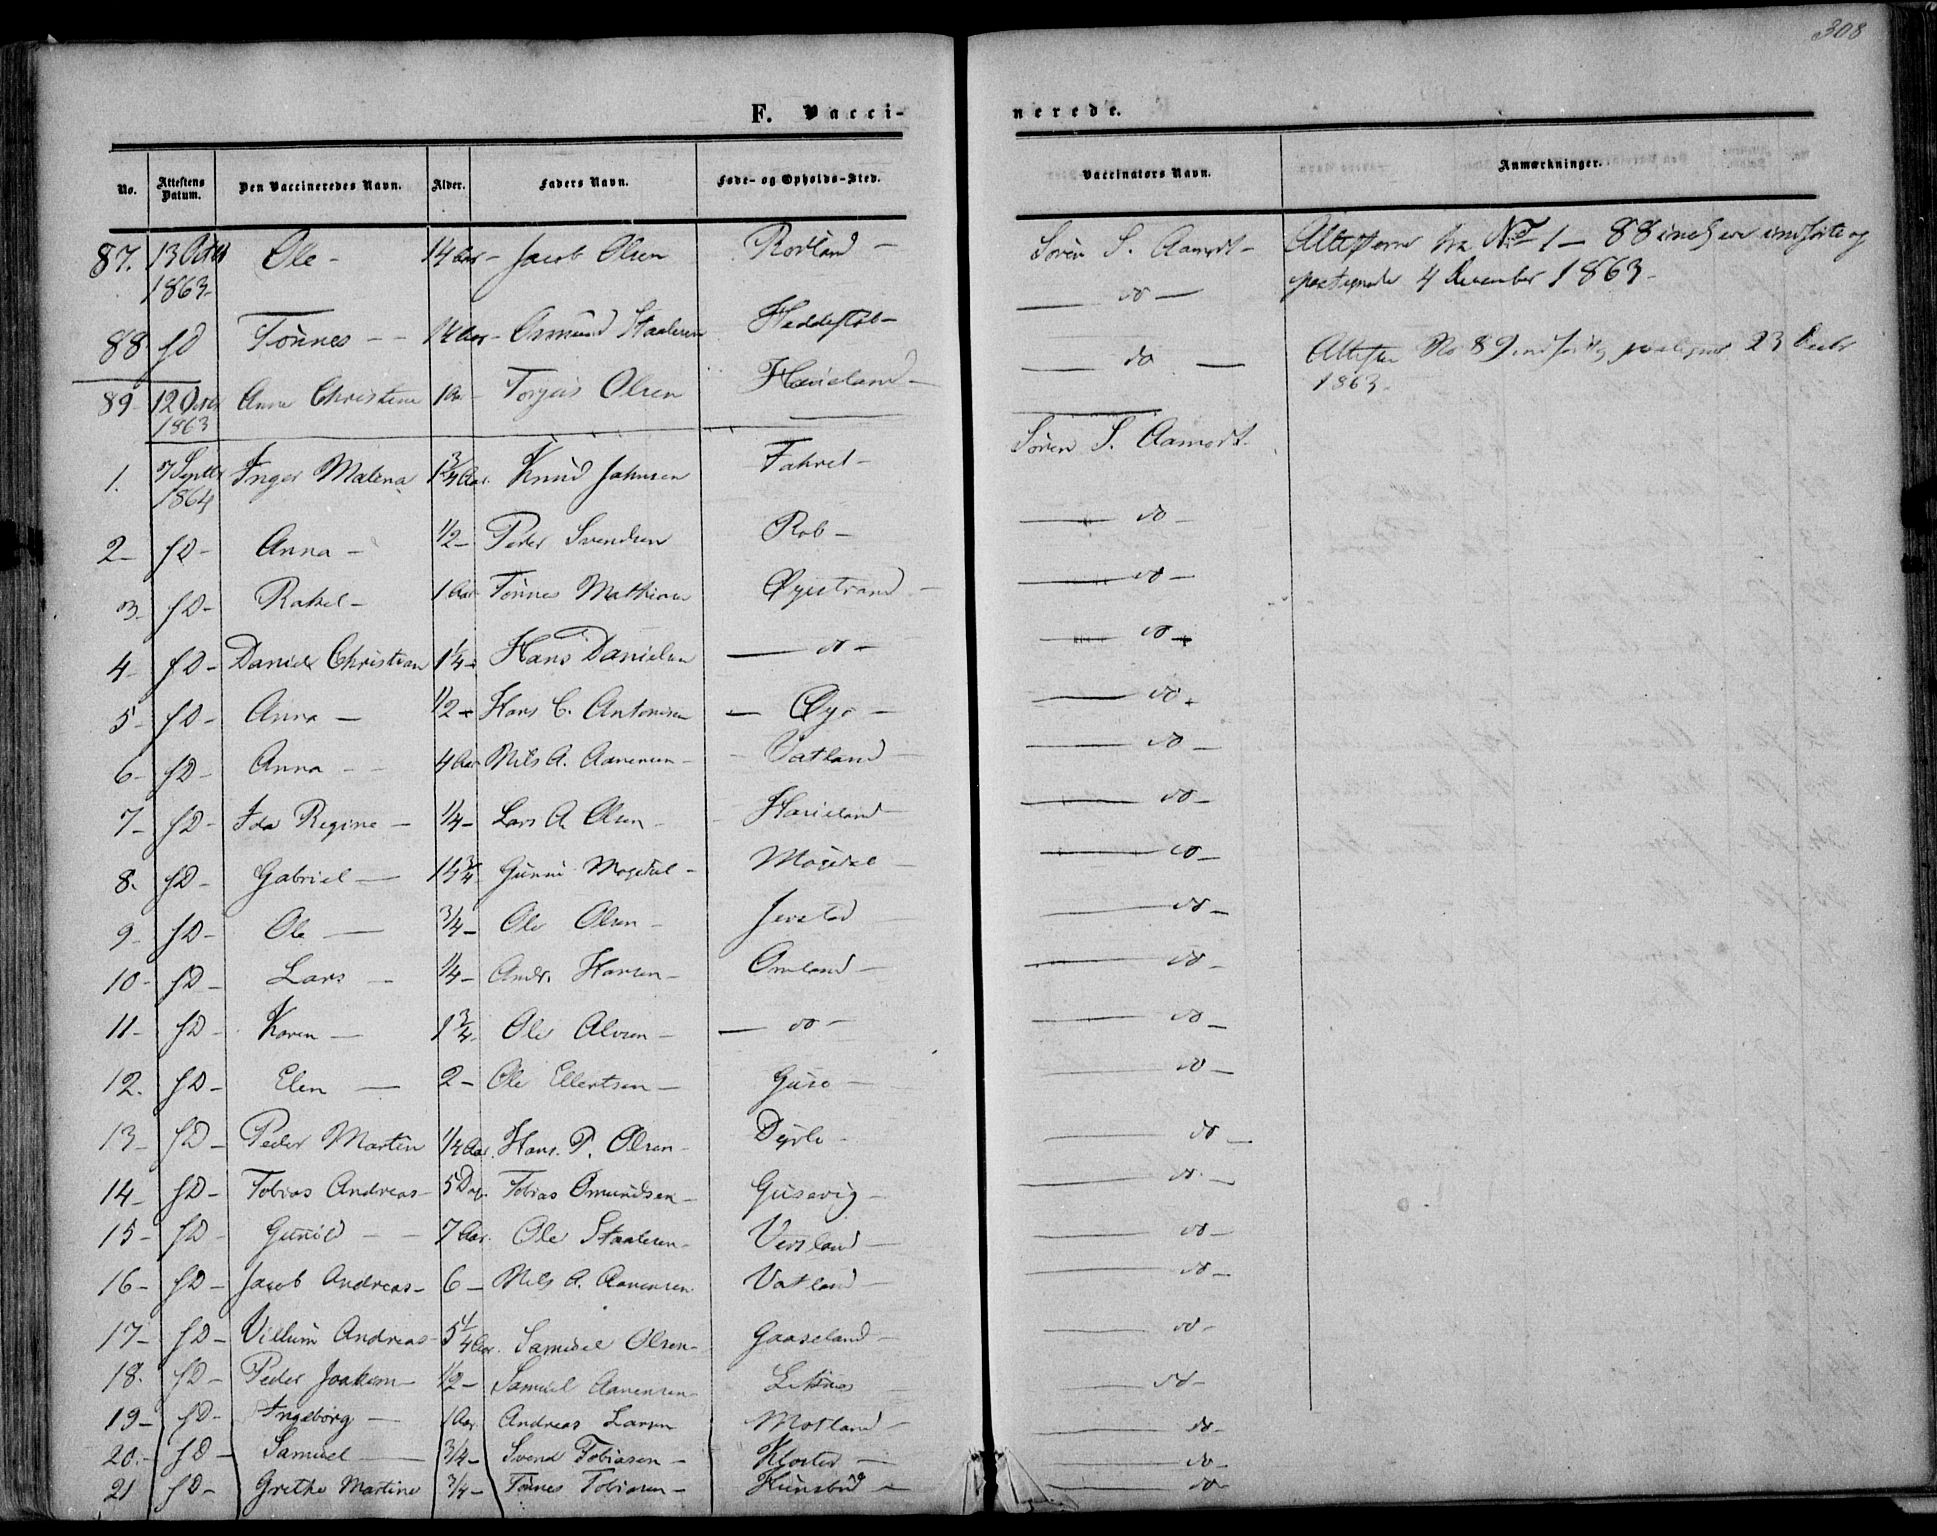 308
F. Vacci-nerede.
No. Attestens Datum. Den Vaccineredes Navn. Alder. Faders Navn. Føde- og Opholds-Sted. Vaccinators Navn. Anmærkninger.
87. 13 1863 Ole - 14 Aar - Jacob Olsen Rørland - Sören S. Aamodt - Attesterne fra No 1 - 88 incl ere indførte og
do - 4 December 1863 -
88 fD Tönnes - - 14 Aar - Osmund Staalesen Heddestøl - do - Attesten No 89 indført og 23 Decbr
1863 -
89 12 1863 Anne Christine 1 Aar - Torgius Olsen Haueland -
1. 7 Septbr 1864 Inger Malena 1 3/4 Aar. Knud Jahnsen Sören S. Aamodt.
2 - fD - Anna - 1/2 - Peder Svendsen Rob - do -
3 - fD - Rakel - 1 Aar Tönnes Mathiasen Øyestrand - do -
4 - fD - Daniel Christian 1 1/4 - Hans Danielsen do - do -
5 - fD - Anna - 1/2 - Hans C. Antonisen - Øye - do -
6 - fD - Anna - - 4 Aar - Nils A. Aanensen - Vatland - do -
7 - fD - Ida Regine - 1/4 - Lars A. Olsen - Haueland - do -
8. fD - Gabriel - 1 3/4 - Gunni Mogedal - Mogedal - do -
9 - fD - Ole - 3/4 - Ole Olsen - Jerstad - do -
10 - fD - Lars - 1/4 - Andr. Hansen - Omland - do -
11 - fD - Karen - 1 3/4 - Ole Alvsen - do - do -
12. fD - Elen - 2 - Ole Ellertsen - Guso - do -
13 - fD - Peder Martin 1/4 Aar. Hans P. Olsen - Dyrli - do -
14 - fD - Tobias Andreas - 5 Tobias Omundsen - Gusevig - do -
15 - fD - Gunild - - 7 Aar. Ole Staalesen - Versland - do -
16 - fD - Jacob Andreas - 6 - Nils A. Aanensen Vatland - do -
17 - fD - Villum Andreas 5 1/4 Aar Samuel Olsen - Gaaseland - do -
18. fD - Peder Joakim - 1/2 - Samuel Aanensen - Leknes do -
19 - fD - Ingeborg - 1 Aar Andreas Larsen Motland - do -
20. - fD - Samuel - 3/4 - Svend Tobiasen - Kloster - do -
21 fD - Grethe Martine 3/4 - Tönnes Tobiasen - Kunsbud - do -